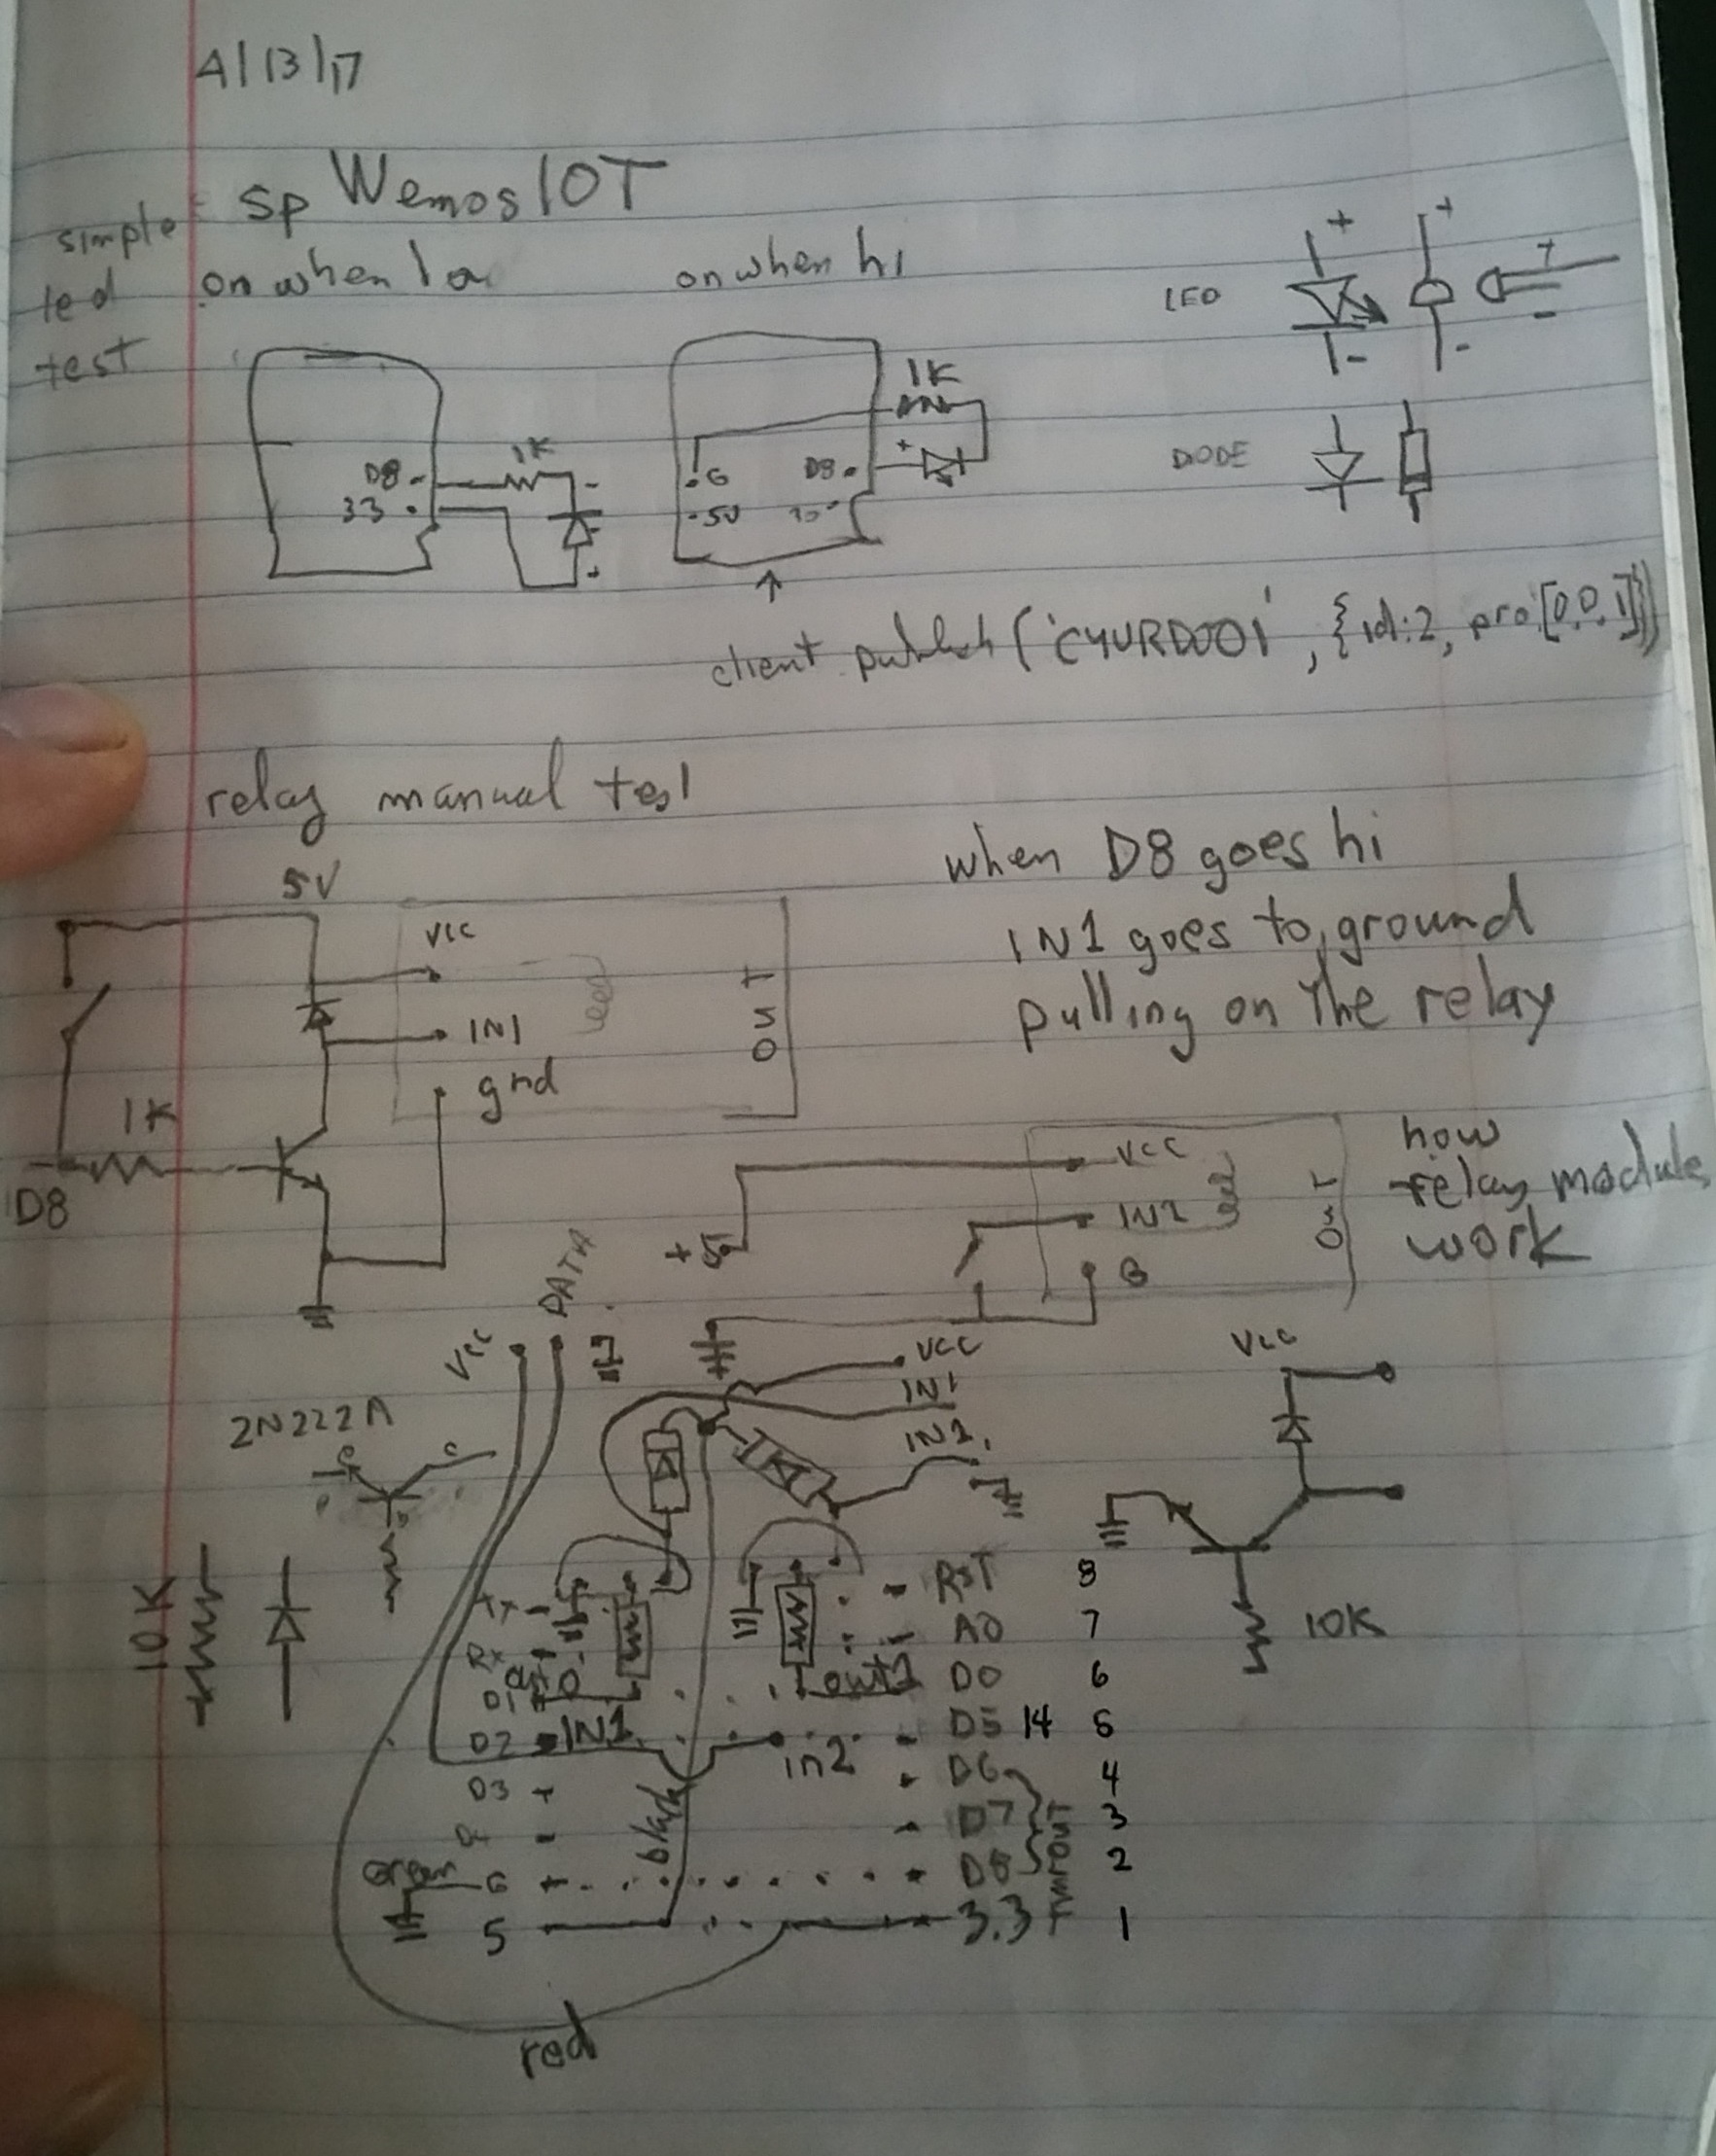 4/13/17
sp Wemos IOT
simple
led
test
on when lo
on when hi
LED
+
+
+
-
-
-
DIODE
1K
D8
33
-
+
1K
+
G
D8
5V
client publish ('CYURD001', {id:2, pro:[0,0,1]})
relay manual test
when D8 goes hi
IN1 goes to ground
pulling on the relay
5V
VCC
IN1
gnd
OUT
1K
D8
how
relay module
work
VCC
IN2
G
OUT
+5
VCC
DATA
VCC
IN1
IN2
VCC
2N222A
e
c
b
10K
10K
TX
RX
D1
D2
D3
G
5
IN1
in2
out1
black
Green
red
RST 8
A0 7
D0 6
D5 14 5
D6 4
D7 3
D8 2
3.3 1